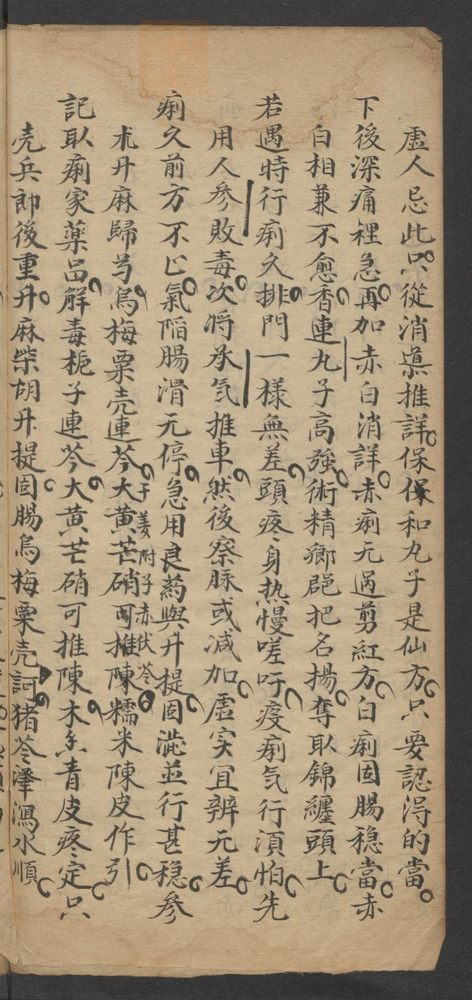 虛人忌此只從消槀推詳保保和丸子是仙方只要認淂的當
下後深痛裡急再加赤白消詳赤痢元過剪紅方白痢固腸穩當赤
白相兼不愈香連丸子高強術精鄉邑把名揚奪取錦纏頭上
若遇時行痢久排門一樣無差頭疼身热慢嗟吁疫痢気行湏怕先
用人參敗毒次将承気推車然後察脉或减加虛实宜辨元差
痢久前方不止氣陷腸滑元停急用良药與升提固澁並行甚穩參
朮升麻歸芍烏梅粟壳連芩大黄芒硝可推陳糯米陳皮作引
干姜附子赤伏苓
記取痢家藥品解毒梔子連芩大黄芒硝可推陳木香青皮疼定只
壳兵郎後重升麻柴胡升提固腸烏梅粟壳訶猪苓澤瀉水順